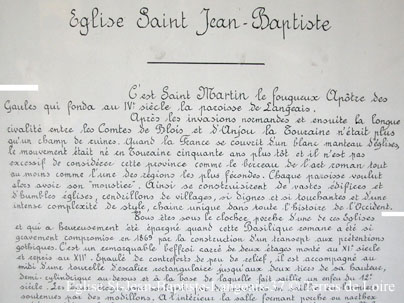 Eglise Saint Jean-Baptiste
C'est Saint Martin le fougueux Apôtre des
Gaules qui fonda au IVe siècle la paroisse de Langeais.
Après les invasions normandes et ensuite la longue
rivalité entre les Comtes de Blois et d'Anjou la Touraine n'était plus
qu'un champ de ruines. Quand la France se couvrit d'un blanc manteau d'églises,
le mouvement était né en Touraine cinquante ans plus tôt et il n'est pas
excessif de considérer cette province comme le berceau de l'art roman tout
au moins comme l'une des régions les plus fécondes. Chaque paroisse voulut
alors avoir son "moustier". Ainsi se construisirent de vastes édifices et
d'humbles églises, cendrillons de villages, si dignes et si touchantes et d'une
intense complexité de style, chaîne unique dans toute l'histoire de l'Occident.
Vous êtes sous le clocher, porche d'une de ces Eglises
et qui a heureusement été épargné quand cette Basilique romane a été si
gravement compromise en 1869 par la construction d'un transept aux prétentions
gothiques. C'est un remarquable beffroi carré de deux étages monté au XIe siècle
et repris au XIIe. Epaulé de contreforts de peu de relief, il est accompagné au
midi d'une tourelle d'escalier rectangulaire jusqu'aux deux tiers de sa hauteur,
demi-cylindrique au-dessus et à la base de laquelle fait saillie un enfeu du 12e
soutenues par des modillons. A l'intérieur la salle formant porche ou narthex